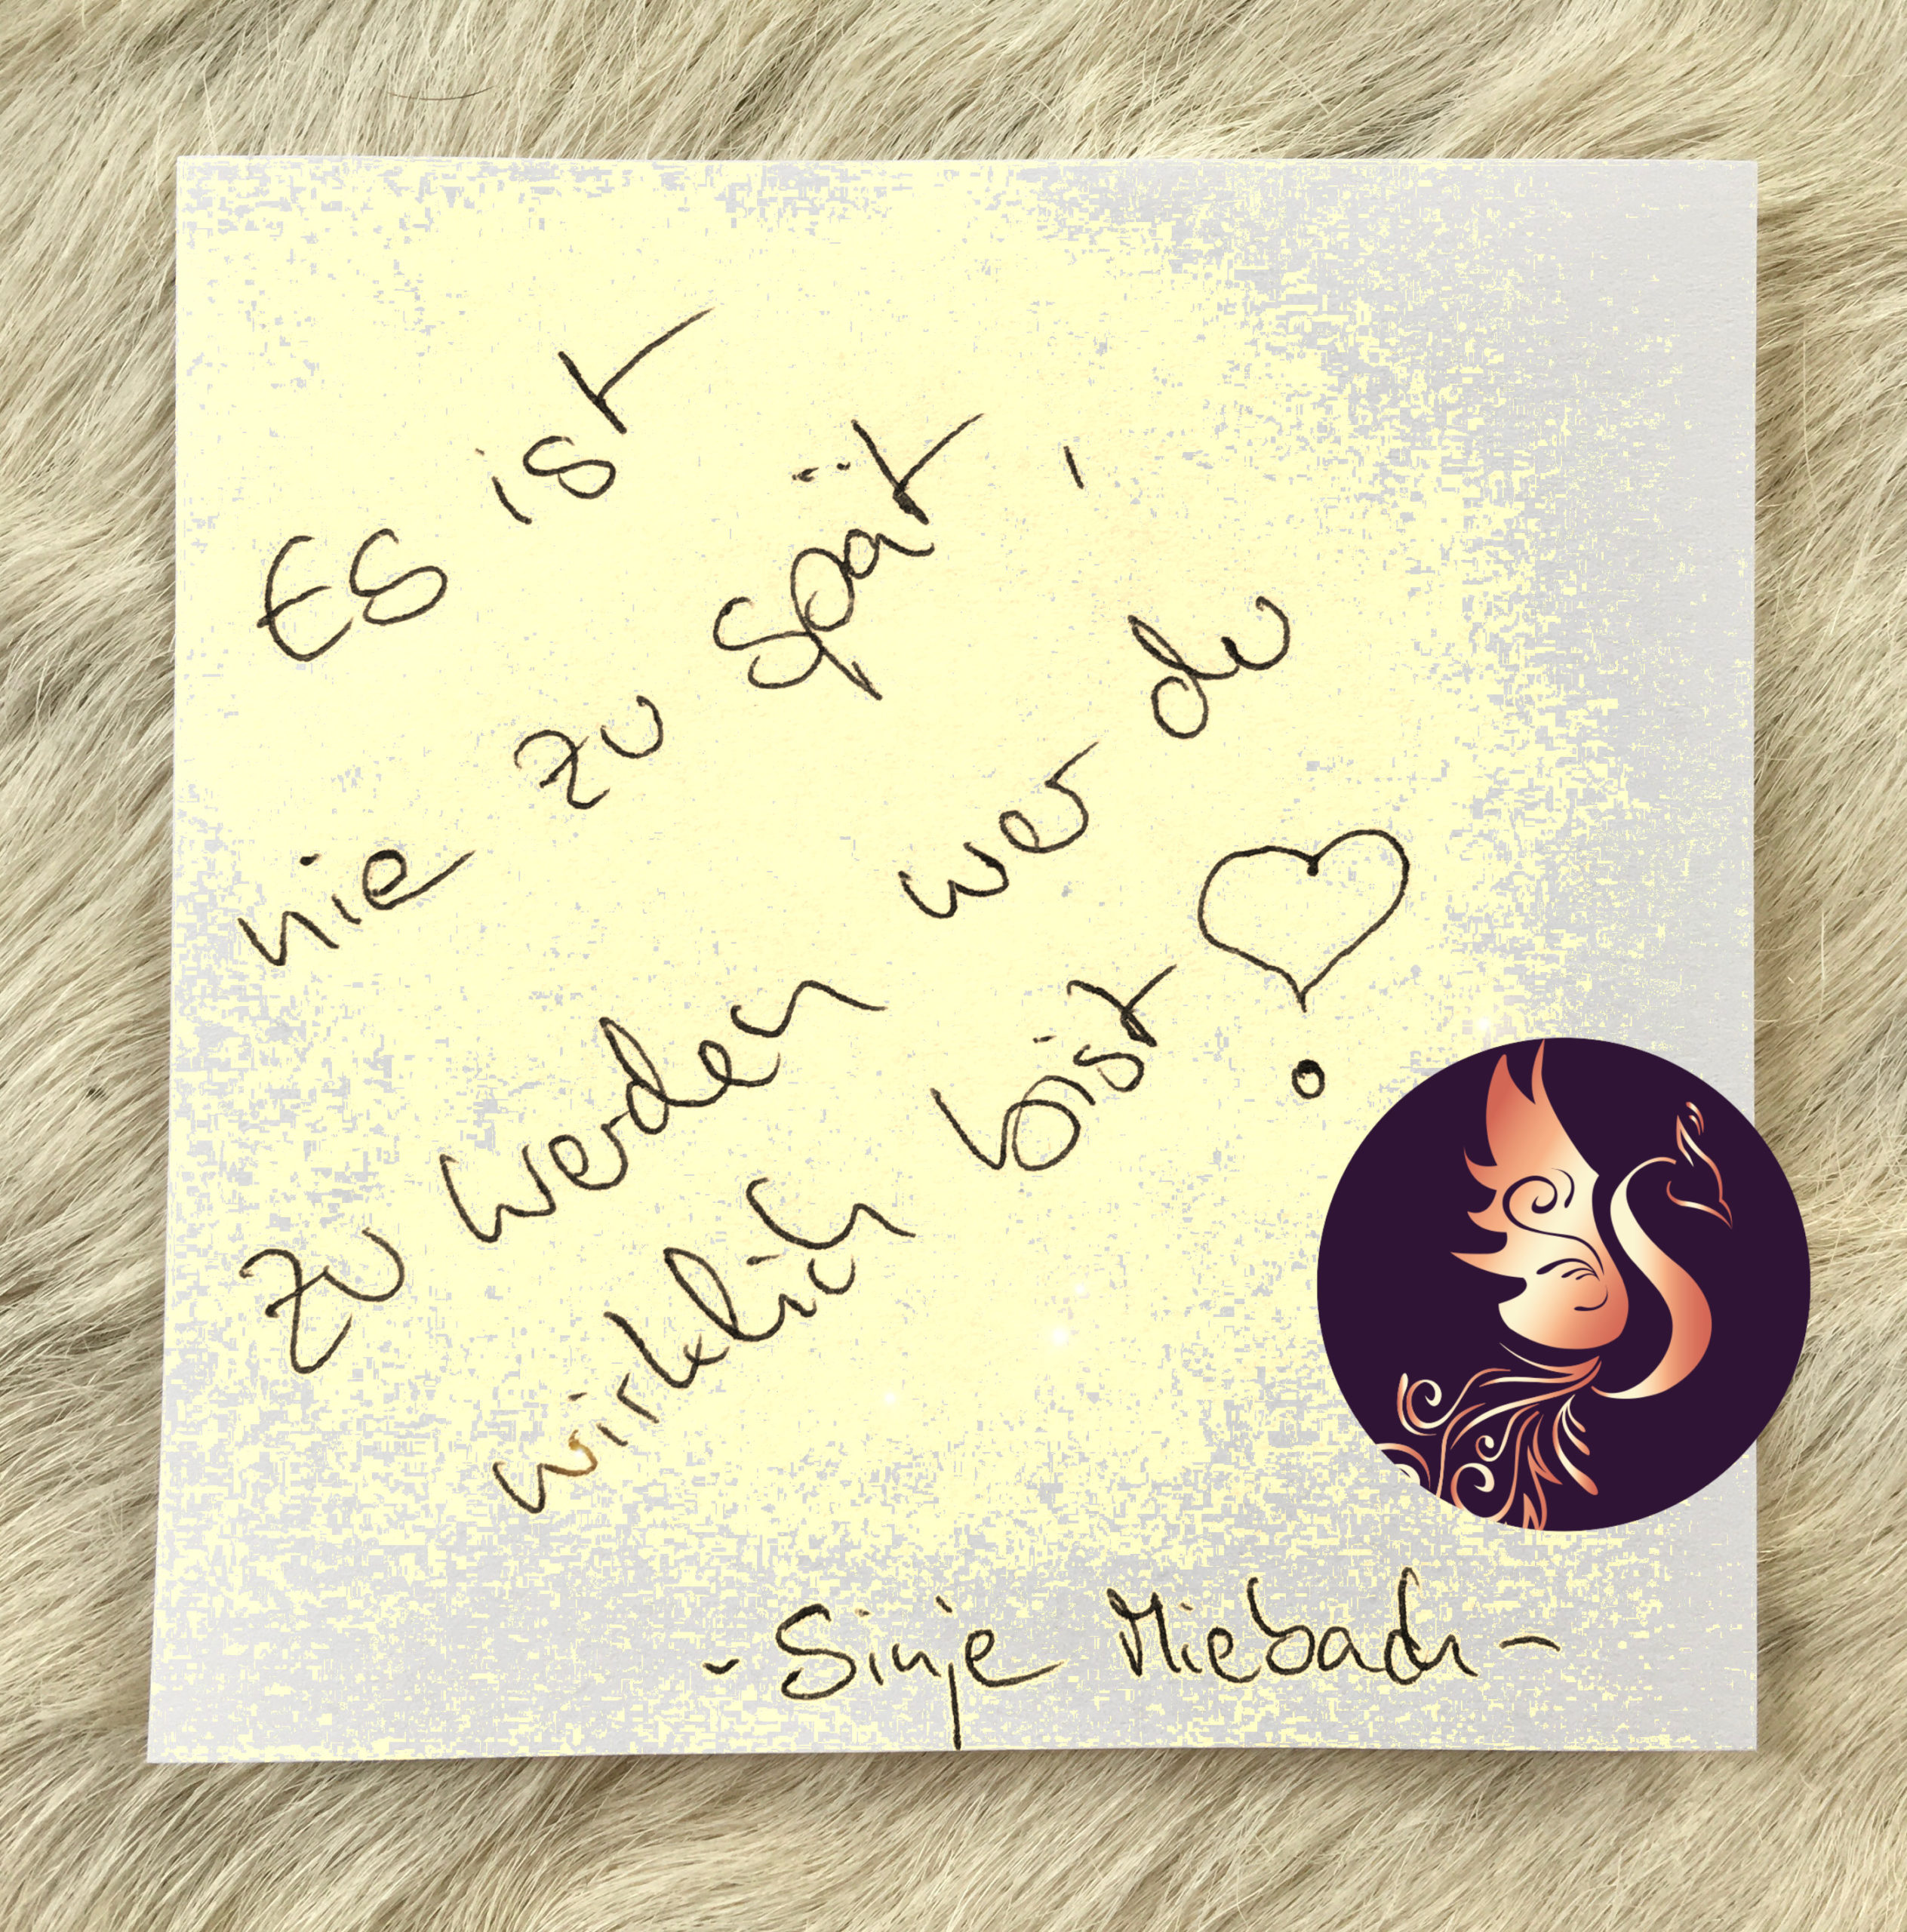 Es ist
nie zu spät,
zu werden wer du
wirklich bist!
-Sinje Miebach-